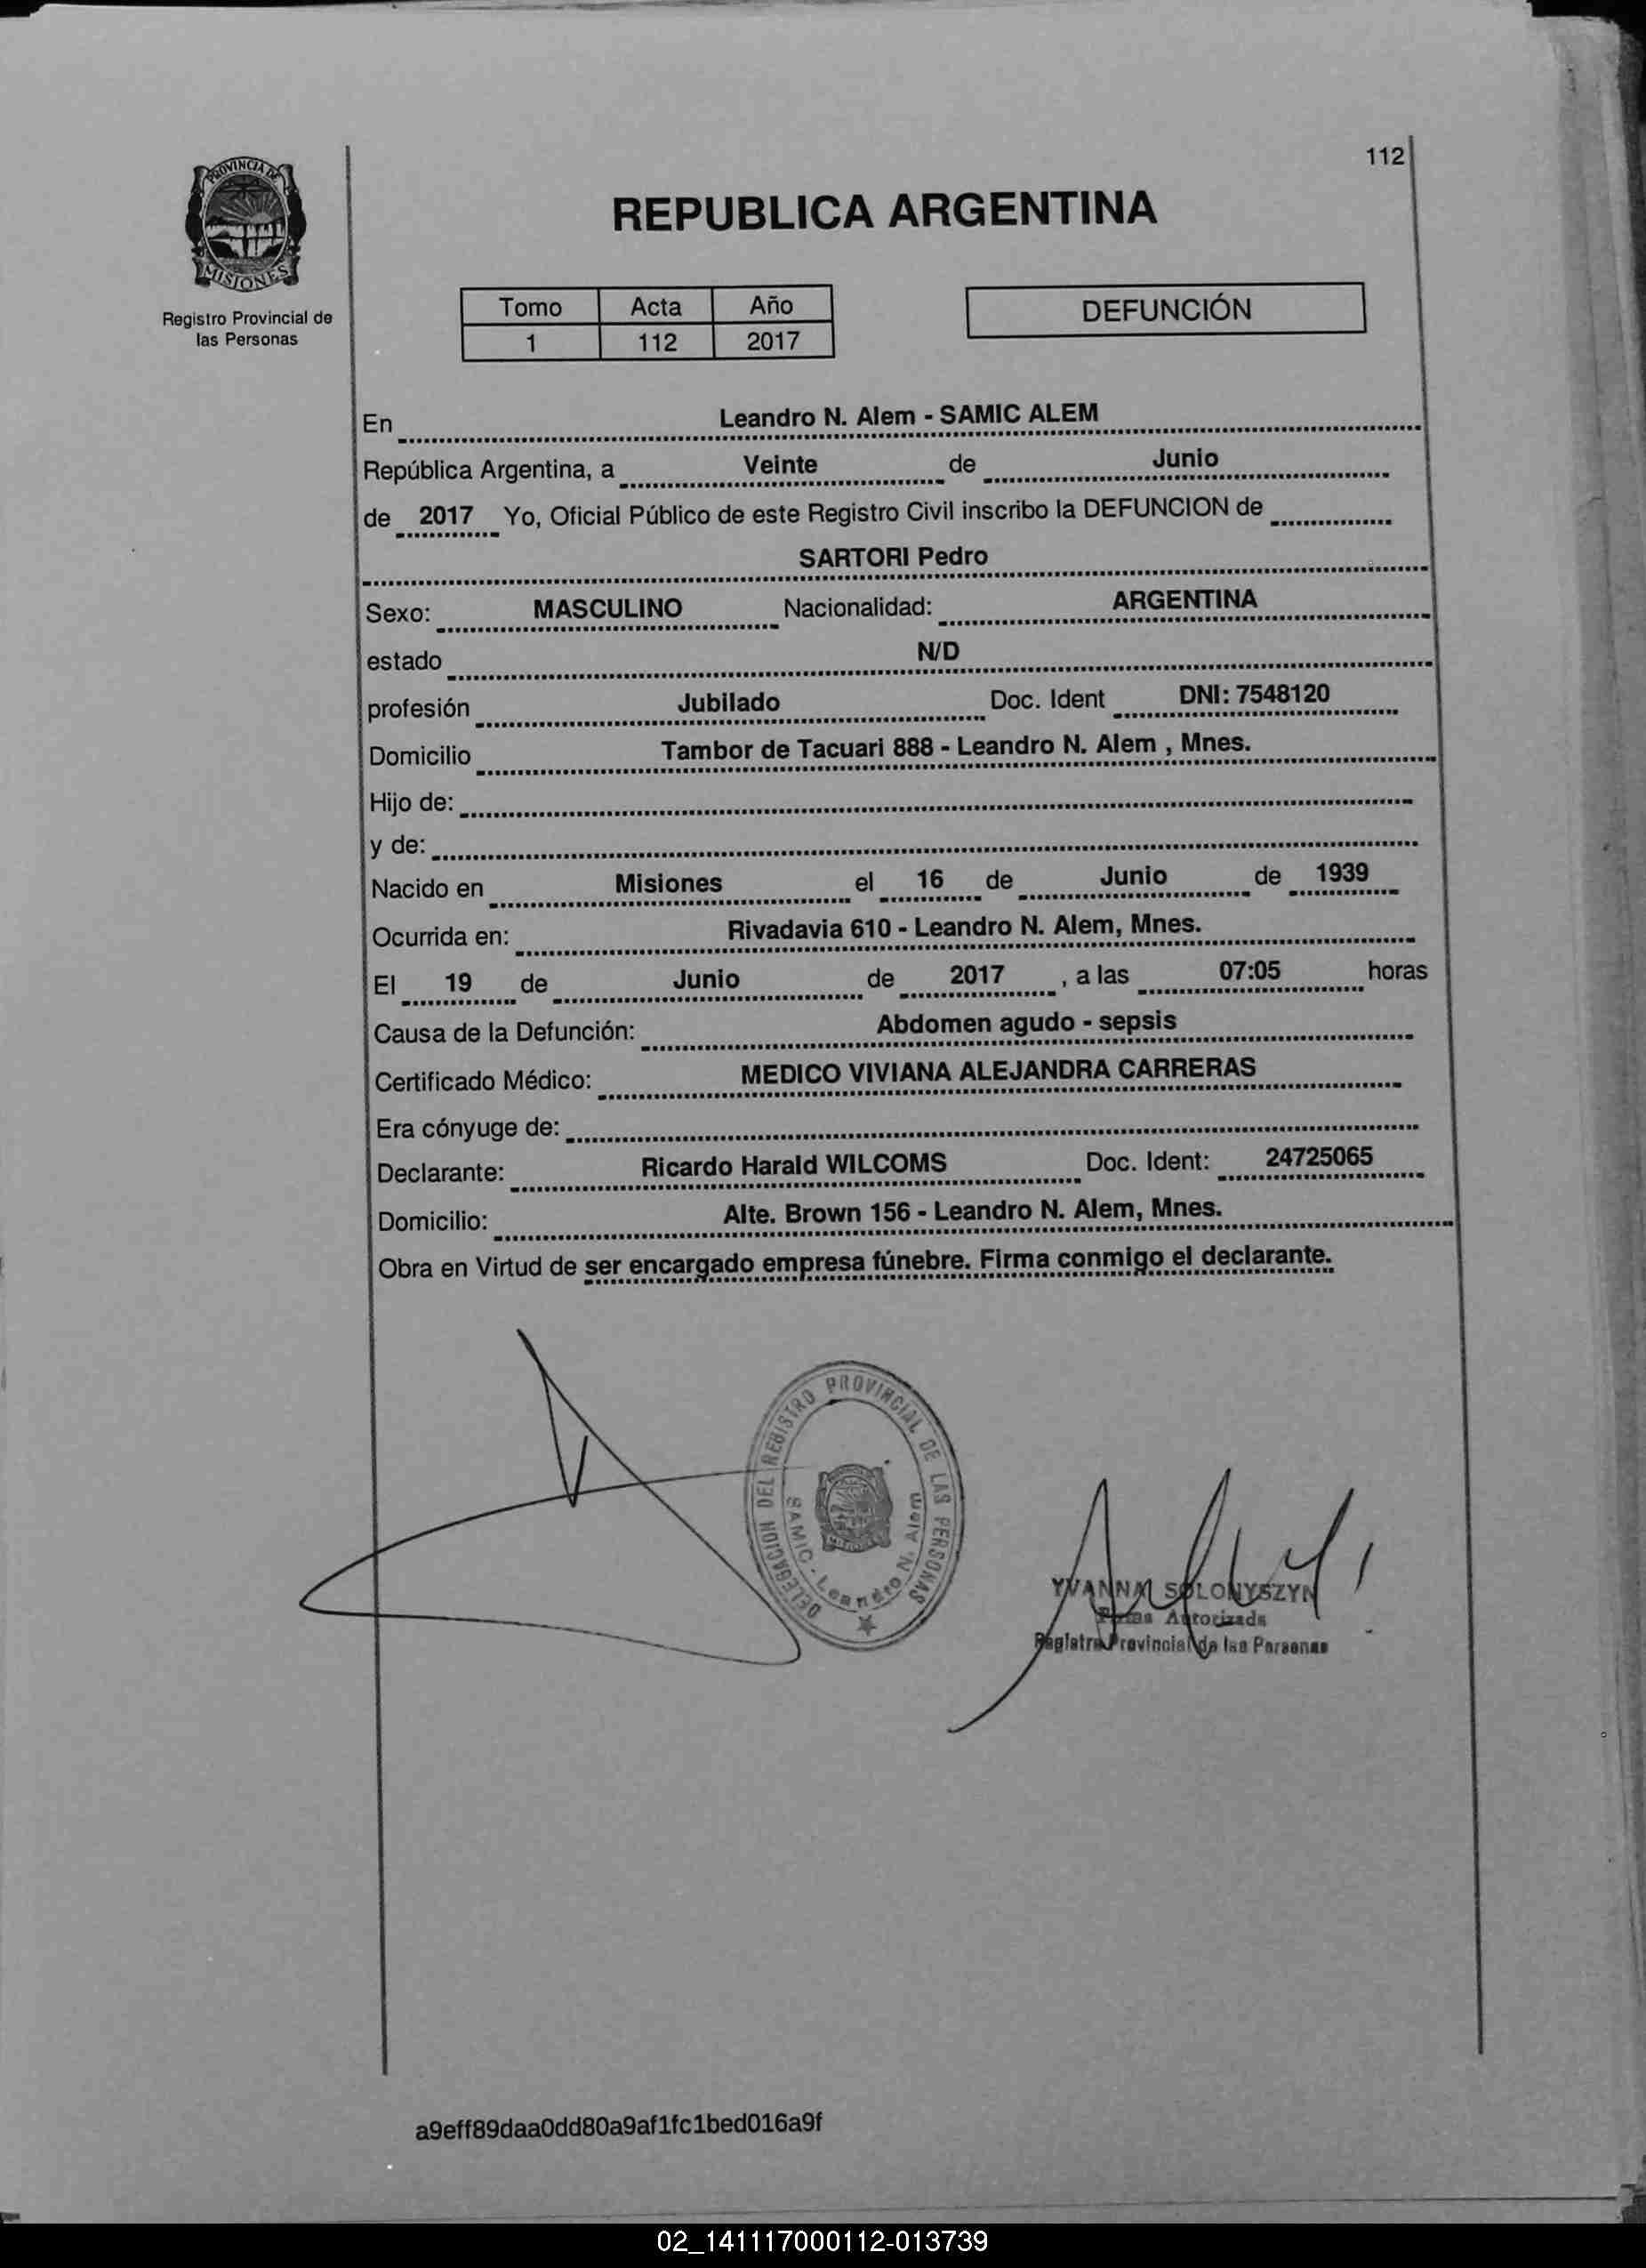 112
PROVINCIA DE
MISIONES
Registro Provincial de
las Personas
REPUBLICA ARGENTINA
Tomo Acta Año
1 112 2017
DEFUNCIÓN
En Leandro N. Alem - SAMIC ALEM
República Argentina, a Veinte de Junio
de 2017 Yo, Oficial Público de este Registro Civil inscribo la DEFUNCION de
SARTORI Pedro
Sexo: MASCULINO Nacionalidad: ARGENTINA
estado N/D
profesión Jubilado Doc. Ident DNI: 7548120
Domicilio Tambor de Tacuari 888 - Leandro N. Alem , Mnes.
Hijo de:
y de:
Nacido en Misiones el 16 de Junio de 1939
Ocurrida en: Rivadavia 610 - Leandro N. Alem, Mnes.
El 19 de Junio de 2017 , a las 07:05 horas
Causa de la Defunción: Abdomen agudo - sepsis
Certificado Médico: MEDICO VIVIANA ALEJANDRA CARRERAS
Era cónyuge de:
Declarante: Ricardo Harald WILCOMS Doc. Ident: 24725065
Domicilio: Alte. Brown 156 - Leandro N. Alem, Mnes.
Obra en Virtud de ser encargado empresa fúnebre. Firma conmigo el declarante.
DELEGACION DEL REGISTRO PROVINCIAL DE LAS PERSONAS
SAMIC - Leandro N. Alem
YVANNA SOLONYSZYN
Autorizada
Registro Provincial de las Personas
a9eff89daa0dd80a9af1fc1bed016a9f
02_141117000112-013739